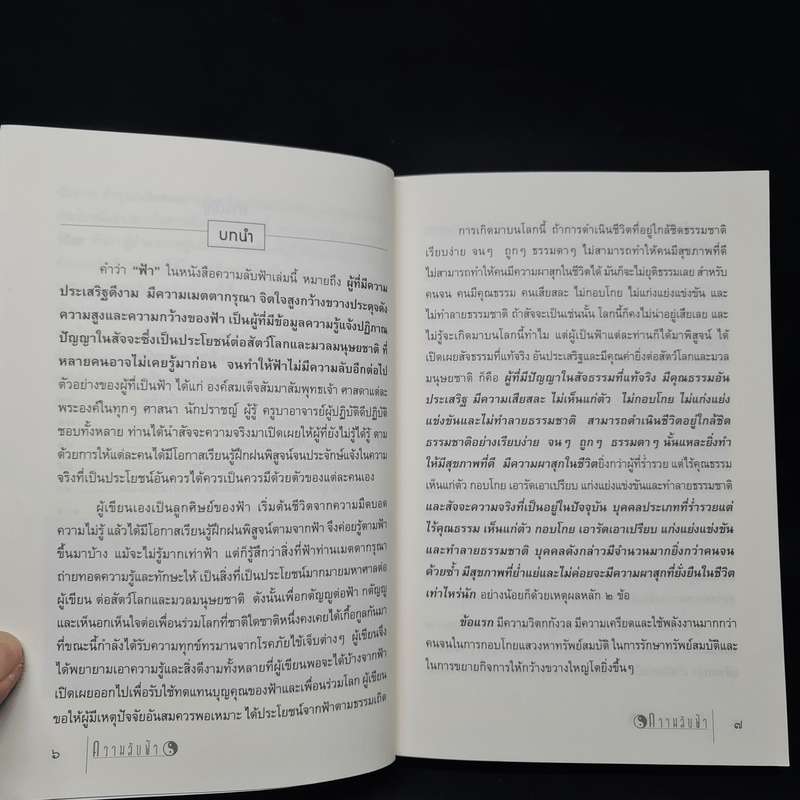 บทนำ
คำว่า “ฟ้า” ในหนังสือความลับฟ้าเล่มนี้ หมายถึง ผู้ที่มีความ
ประเสริฐดีงาม มีความเมตตากรุณา จิตใจสูงกว้างขวางประดุจดัง
ความสูงและความกว้างของฟ้า เป็นผู้ที่มีข้อมูลความรู้แจ้งปฏิภาณ
ปัญญาในสัจจะซึ่งเป็นประโยชน์ต่อสัตว์โลกและมวลมนุษยชาติ ที่
หลายคนอาจไม่เคยรู้มาก่อน จนทำให้ฟ้าไม่มีความลับอีกต่อไป
ตัวอย่างของผู้ที่เป็นฟ้า ได้แก่ องค์สมเด็จสัมมาสัมพุทธเจ้า ศาสดาแต่ละ
พระองค์ในทุกๆ ศาสนา นักปราชญ์ ผู้รู้ ครูบาอาจารย์ผู้ปฏิบัติดีปฏิบัติ
ชอบทั้งหลาย ท่านได้นำสัจจะความจริงมาเปิดเผยให้ผู้ที่ยังไม่รู้ได้รู้ ตาม
ด้วยการให้แต่ละคนได้มีโอกาสเรียนรู้ฝึกฝนพิสูจน์จนประจักษ์แจ้งในความ
จริงที่เป็นประโยชน์อันควรได้ควรเป็นควรมีด้วยตัวของแต่ละคนเอง
ผู้เขียนเองเป็นลูกศิษย์ของฟ้า เริ่มต้นชีวิตจากความมืดบอด
ความไม่รู้ แล้วได้มีโอกาสเรียนรู้ฝึกฝนพิสูจน์ตามจากฟ้า จึงค่อยรู้ตามฟ้า
ขึ้นมาบ้าง แม้จะไม่รู้มากเท่าฟ้า แต่ก็รู้สึกว่าสิ่งที่ฟ้าท่านเมตตากรุณา
ถ่ายทอดความรู้และทักษะให้ เป็นสิ่งที่เป็นประโยชน์มากมายมหาศาลต่อ
ผู้เขียน ต่อสัตว์โลกและมวลมนุษยชาติ ดังนั้นเพื่อกตัญญูต่อฟ้า กตัญญู
และเห็นอกเห็นใจต่อเพื่อนร่วมโลกที่ชาติใดชาติหนึ่งคงเคยได้เกื้อกูลกันมา
ที่ขณะนี้กำลังได้รับความทุกข์ทรมานจากโรคภัยไข้เจ็บต่างๆ ผู้เขียนจึง
ได้พยายามเอาความรู้และสิ่งดีงามทั้งหลายที่ผู้เขียนพอจะได้บ้างจากฟ้า
เปิดเผยออกไปเพื่อรับใช้ทดแทนบุญคุณของฟ้าและเพื่อนร่วมโลก ผู้เขียน
ขอให้ผู้มีเหตุปัจจัยอันสมควรพอเหมาะ ได้ประโยชน์จากฟ้าตามธรรมเถิด
๖ ความลับฟ้า
การเกิดมาบนโลกนี้ ถ้าการดำเนินชีวิตที่อยู่ใกล้ชิดธรรมชาติ
เรียบง่าย จนๆ ถูกๆ ธรรมดาๆ ไม่สามารถทำให้คนมีสุขภาพที่ดี
ไม่สามารถทำให้คนมีความผาสุกในชีวิตได้ มันก็จะไม่ยุติธรรมเลย สำหรับ
คนจน คนมีคุณธรรม คนเสียสละ ไม่กอบโกย ไม่แก่งแย่งแข่งขัน และ
ไม่ทำลายธรรมชาติ ถ้าสัจจะเป็นเช่นนั้น โลกนี้ก็คงไม่น่าอยู่เสียเลย และ
ไม่รู้จะเกิดมาบนโลกนี้ทำไม แต่ผู้เป็นฟ้าแต่ละท่านก็ได้มาพิสูจน์ ได้
เปิดเผยสัจธรรมที่แท้จริง อันประเสริฐและมีคุณค่ายิ่งต่อสัตว์โลกและมวล
มนุษยชาติ ก็คือ ผู้ที่มีปัญญาในสัจธรรมที่แท้จริง มีคุณธรรมอัน
ประเสริฐ มีความเสียสละ ไม่เห็นแก่ตัว ไม่กอบโกย ไม่แก่งแย่ง
แข่งขันและไม่ทำลายธรรมชาติ สามารถดำเนินชีวิตอยู่ใกล้ชิด
ธรรมชาติอย่างเรียบง่าย จนๆ ถูกๆ ธรรมดาๆ นั้นแหละยิ่งทำ
ให้มีสุขภาพที่ดี มีความผาสุกในชีวิตยิ่งกว่าผู้ที่ร่ำรวย แต่ไร้คุณธรรม
เห็นแก่ตัว กอบโกย เอารัดเอาเปรียบ แก่งแย่งแข่งขันและทำลายธรรมชาติ
และสัจจะความจริงที่เป็นอยู่ในปัจจุบัน บุคคลประเภทที่ร่ำรวยแต่
ไร้คุณธรรม เห็นแก่ตัว กอบโกย เอารัดเอาเปรียบ แก่งแย่งแข่งขัน
และทำลายธรรมชาติ บุคคลดังกล่าวมีจำนวนมากยิ่งกว่าคนจน
ด้วยซ้ำ มีสุขภาพที่ย่ำแย่และไม่ค่อยจะมีความสุกที่ยั่งยืนในชีวิต
เท่าไหร่นัก อย่างน้อยก็ด้วยเหตุผลหลัก ๒ ข้อ
ข้อแรก มีความวิตกกังวล มีความเครียดและใช้พลังงานมากกว่า
คนจนในการกอบโกยแสวงหาทรัพย์สมบัติ ในการรักษาทรัพย์สมบัติและ
ในการขยายกิจการให้กว้างขวางใหญ่โตยิ่งขึ้นๆ
ความลับฟ้า ๗